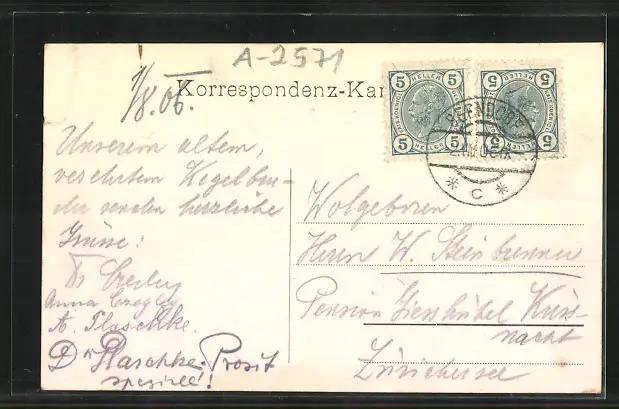 A-2571
1/8. 06.
Korrespondenz-Kar
5 HELLER 5
5 HELLER 5
5 HELLER 5
5 HELLER 5
C
Unserem altem,
verehrtem Kegelbru-
der senden herzliche
Grüsse:
Dr Czegley
Anna Czegley
A. Plaschke.
Dr Plaschke. Prosit
speziell!
Wolgeboren
Herrn W. Steinbrenner
Pension Giesshübel Küss-
nacht
Zürichersee